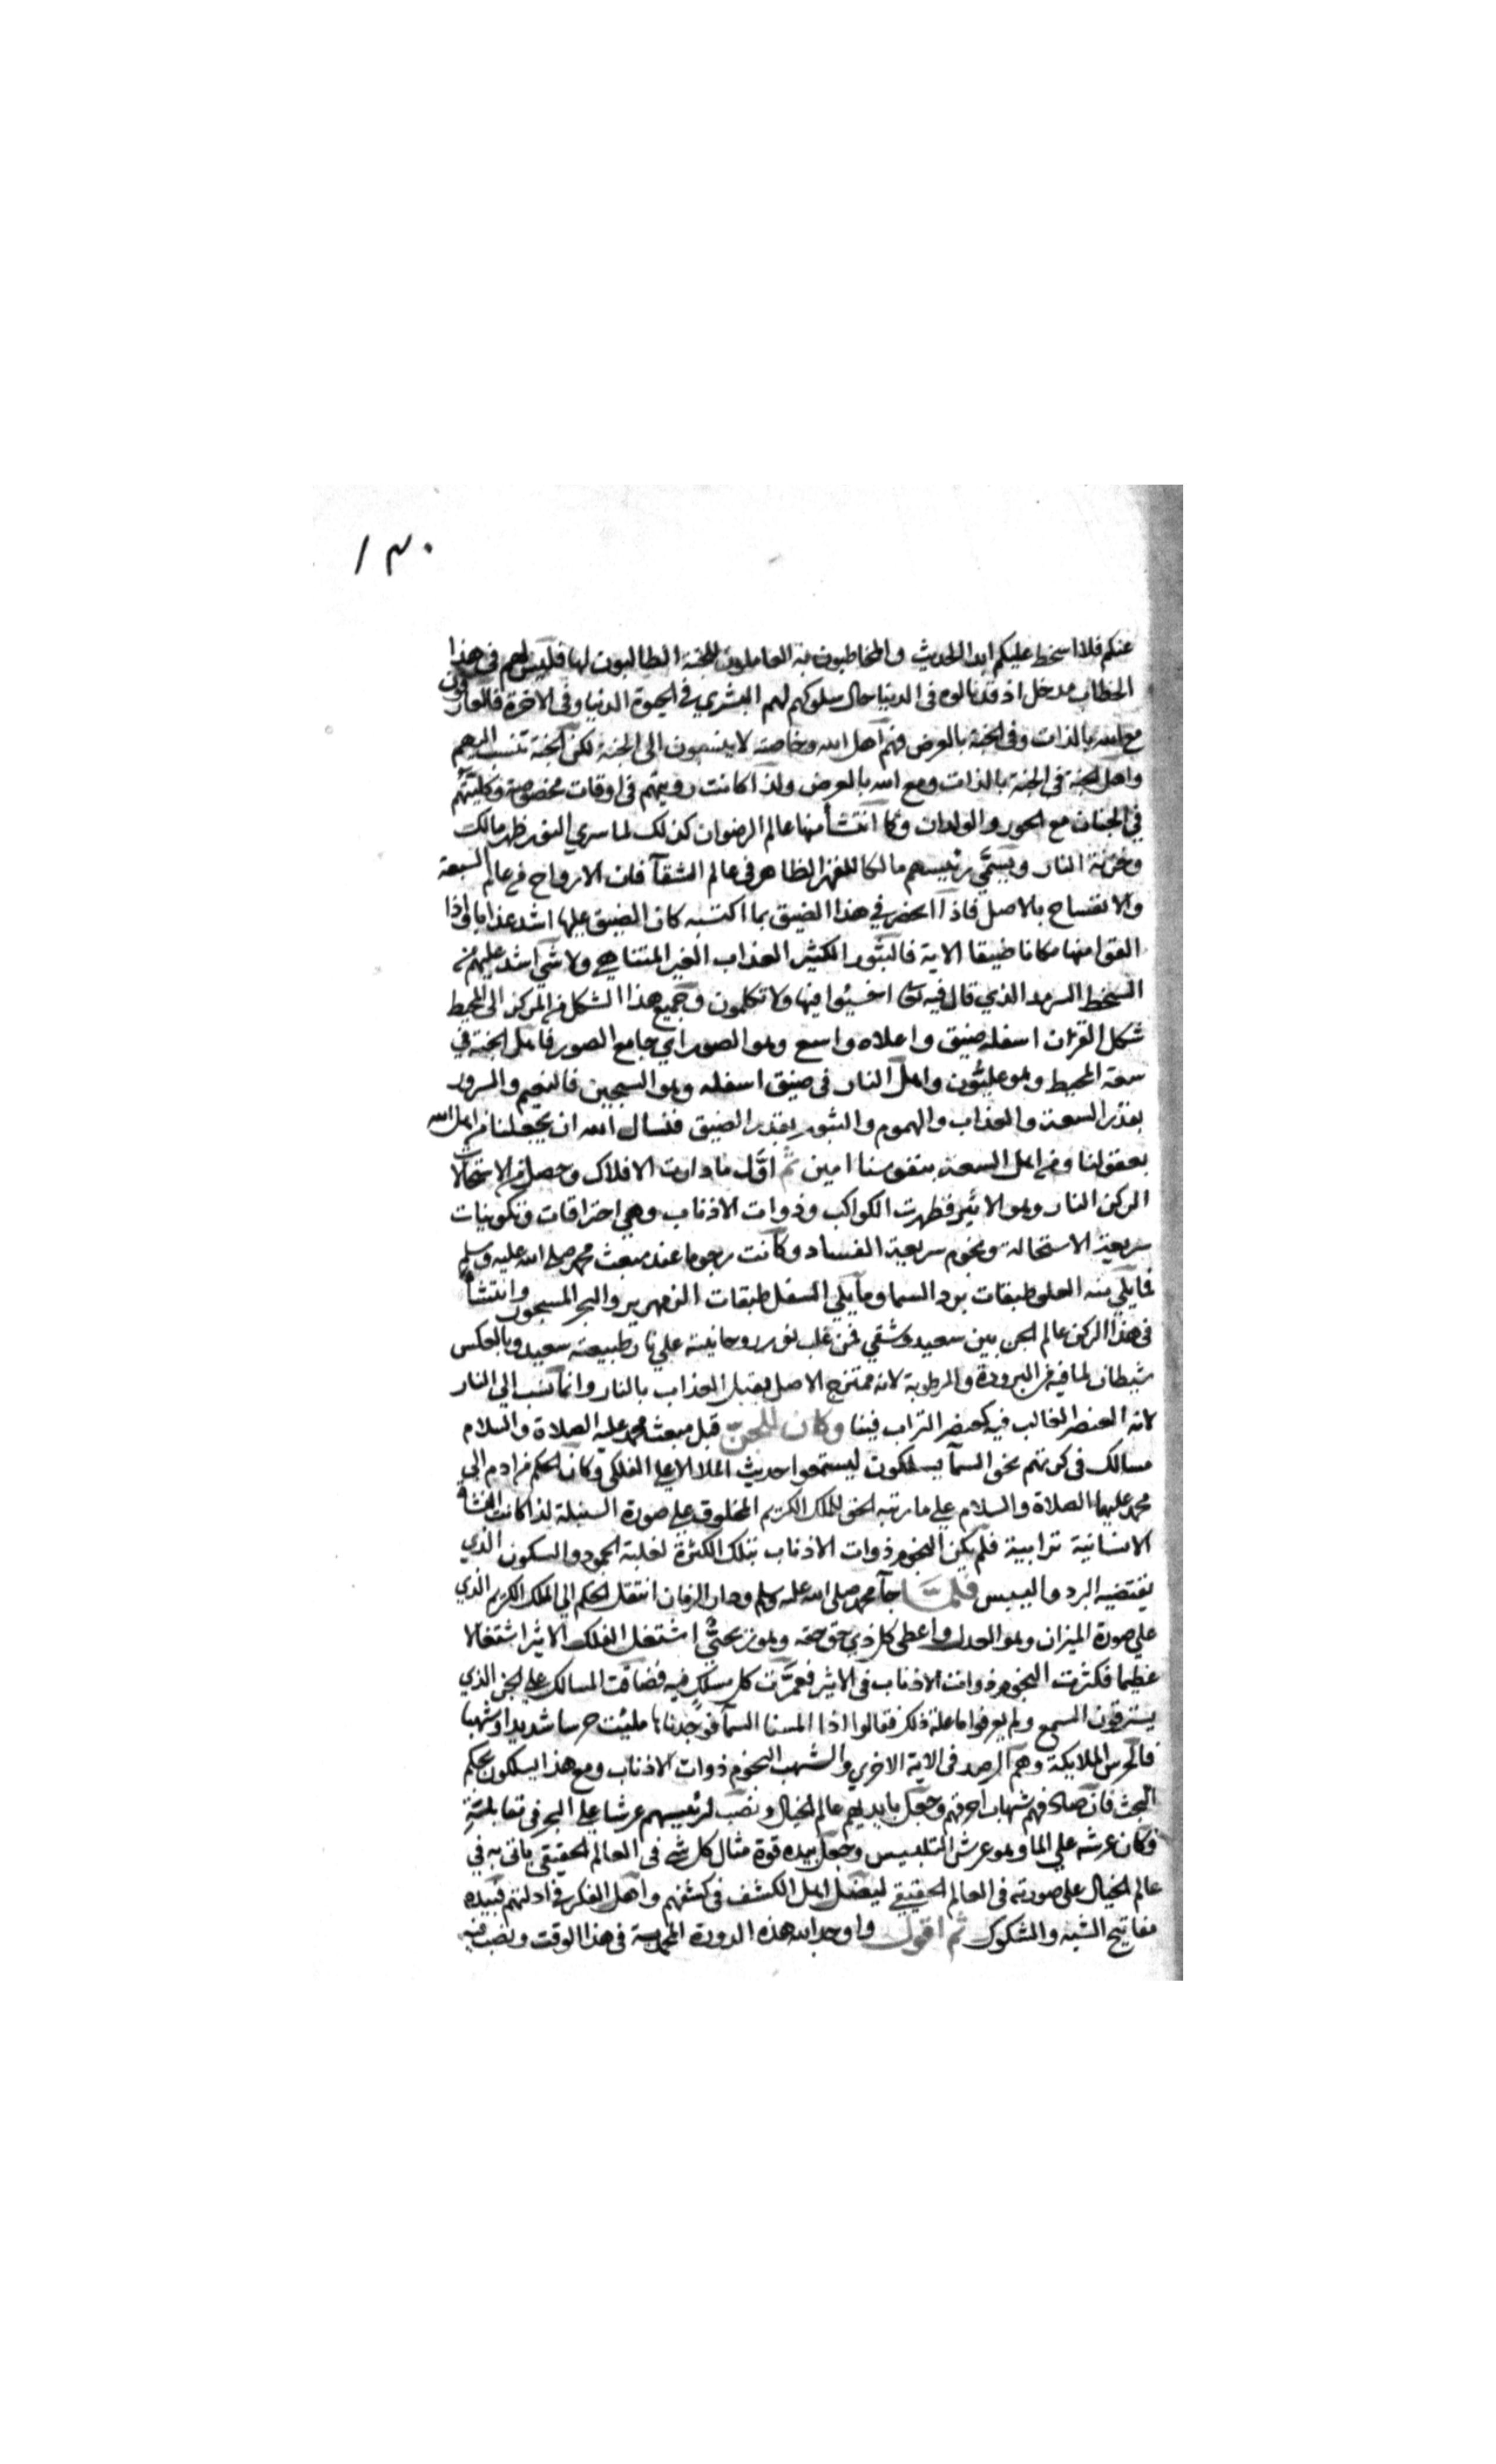 ١٣٠
عنكم فلا اسخط عليكم ابدا الحديث والمخاطبون به العاملون للجنة الطالبون لها فليس لهم في هذا
الخطاب مدخل اذ قد نالوه في الدنيا حال سلوكهم لهم البشري في الحيوة الدنيا وفي الاخرة فالعارفون
مع الله بالذات وفي الجنة بالعرض فهم اهل الله وخاصته لا ينسبون الى الجنة لكن الجنة تنسب اليهم
واهل الجنة في الجنة بالذات ومع الله بالعرض ولذا كانت رويتهم في اوقات مخصوصة وكليتهم
في الجنان مع الحور والولدان وكما انتشأ منها عالم الرضوان كذلك لما سري النور ظهر مالك
وخزنة النار ويسمي رئيسهم مالكا للقهر الظاهر في عالم الشقآ فان الارواح في عالم السعة
والانفساح بالاصل فاذا انحصر في هذا الضيق بما اكتسبه كان الضيق عليها اشد عذابا واذا
القوا منها مكانا ضيقا الاية فالثبور الكثير العذاب الغير المتناهي ولا شي اشد عليهم من
السخط السرمد الذي قال فيه تعا اخسئوا فيها ولا تكلمون وجميع هذا الشكل من المركز الى المحيط
شكل القرن اسفله ضيق واعلاه واسع وهو الصور اي جامع الصور فاهل الجنة في
سعة المحيط وهو عليون واهل النار في ضيق اسفله وهو السجين فالنعيم والسرور
بقدر السعة والعذاب والهموم والثبور بقدر الضيق فنسال الله ان يجعلنا من اهل الله
بعقولنا ومن اهل السعة بنفوسنا امين ثم اول ما دارت الافلاك وحصل من الاستحالات
الركن النار وهو الاثير فظهرت الكواكب وذوات الاذناب وهي احتراقات وتكوينات
سريعة الاستحالة ونجوم سريعة الفساد وكانت رجوما عند مبعث محمد صلى الله عليه وسلم
فما يلي منه العلو طبقات برد السما وما يلي السفل طبقات الزمهرير والبحر المسجور وانتشأ
في هذا الركن عالم الجن بين سعيد وشقي فمن غلب نور روحانيته علي نار طبيعته سعيد وبالعكس
شيطان لما فيه من البرودة والرطوبة لانه ممتزج الاصل يقبل العذاب بالنار وانما نسب الي النار
لانه العنصر الغالب فيه كعنصر التراب فينا وكان للجن قبل مبعث محمد عليه الصلاة والسلام
مسالك في كرتهم نحو السمآ يسلكون ليستمعوا حديث الملا الاعلي الفلكي وكان الحكم من ادم الي
محمد عليهما الصلاة والسلام علي ما رتبه الحق للملك الكريم المخلوق علي صورة السنبلة لذا كانت النشاة
الانسانية ترابية فلم يكن النجوم ذوات الاذناب بتلك الكثرة لغلبة الجمود والسكون الذي
يقتضيه البرد واليبس فلما جآ محمد صلى الله عليه وسلم ودار الزمان انتقل الحكم الي الملك الكريم الذي
علي صورة الميزان وهو العدل واعطي كل ذي حق حقه اشتعل الفلك الاثير اشتعالا
عظيما فكثرت النجوم ذوات الاذناب في الاثير فعمرت كل مسلك فيه فضاقت المسالك علي الجن الذي
يسترقون السمع ولم يعرفوا ما علة ذلك فقالوا اذا لمسنا السمآ فوجدناها ملئت حرسا شديدا وشهبا
فالحرس الملايكة وهم الرصد في الاية الاخري والشهب النجوم ذوات الاذناب ومع هذا يسلكون بحكم
البحث فان صادفهم شهاب احرقهم وجعل بايديهم عالم الخيال ونصب لرئيسهم عرشا علي البحر في مقابلة
وكان عرشه علي الما وهو عرش التلبيس وجعل بيده قوة مثال كل شي في العالم الحقيقي ياتي به في
عالم الخيال علي صورته في العالم الحقيقي ليضل اهل الكشف في كشفهم واهل الفكر في ادلتهم فبيده
مفاتيح الشبه والشكوك ثم اقول واوجد الله هذه الدورة المحمدية في هذا الوقت ونصب فيه